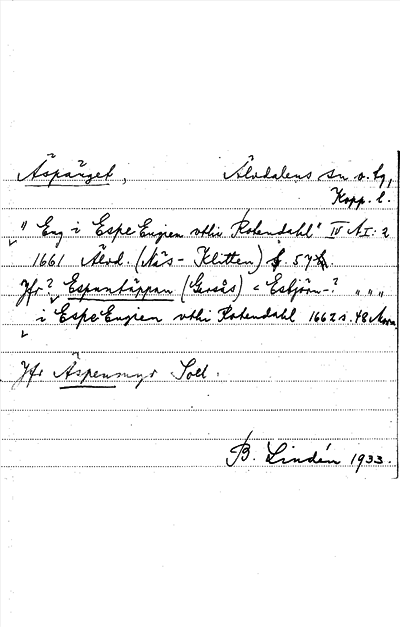 Äspänget, Älvdalens sn o. tg,
Kopp. l.
" Eng i Espe Engien vthi Rotendahl" IV A I: 2
1661 Älvd. (Näs - Klitten) s. 57
Jfr? Espantäppan (Garsås) < Esbjörn-? " " "
i Espe Engien vthi Rotendahl 1662 s. 48 Mora
Jfr Äspensmyr Soll.
B. Lindén 1933.